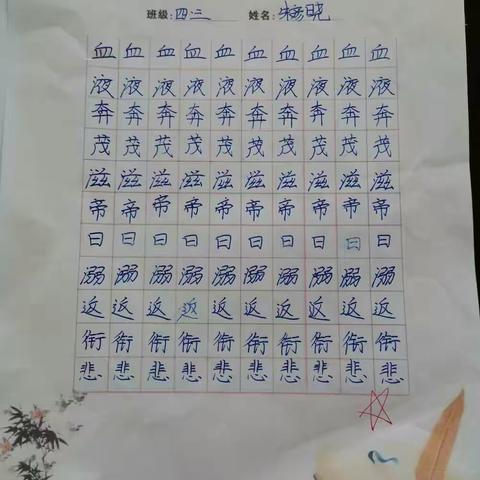 班级:四三 姓名:杨晓
血血血血血血血血血血
液液液液液液液液液液
奔奔奔奔奔奔奔奔奔奔
茂茂茂茂茂茂茂茂茂茂
滋滋滋滋滋滋滋滋滋滋
帝帝帝帝帝帝帝帝帝帝
曰曰曰曰曰曰曰曰曰曰
溺溺溺溺溺溺溺溺溺溺
返返返返返返返返返返
衔衔衔衔衔衔衔衔衔衔
悲悲悲悲悲悲悲悲悲悲